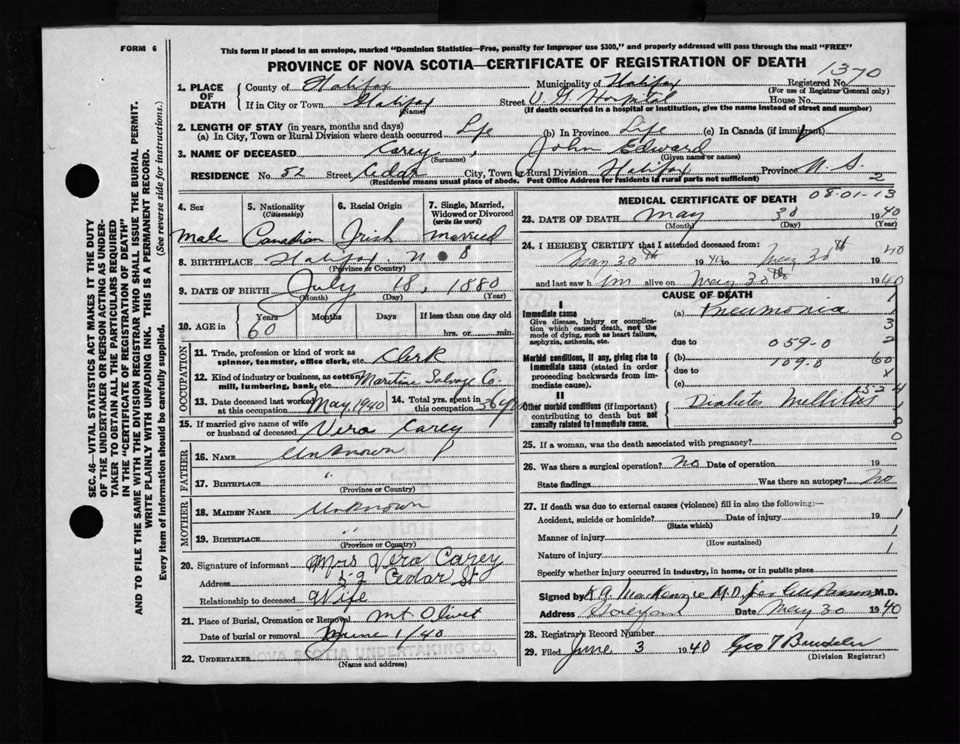 FORM 6
This form if placed in an envelope, marked "Dominion Statistics—Free, penalty for improper use $300," and properly addressed will pass through the mail "FREE"
PROVINCE OF NOVA SCOTIA—CERTIFICATE OF REGISTRATION OF DEATH
1370
1. PLACE OF DEATH County of Halifax Municipality of Halifax Registered No.
(For use of Registrar General only)
If in City or Town Halifax Street V. G. Hospital House No.
(Name) (If death occurred in a hospital or institution, give the name instead of street and number)
2. LENGTH OF STAY (in years, months and days)
(a) In City, Town or Rural Division where death occurred Life (b) In Province Life (c) In Canada (if immigrant)
3. NAME OF DECEASED Carey, John Edward
(Surname) (Given name or names)
RESIDENCE No. 52 Street Cedar City, Town or Rural Division Halifax Province N. S.
(Residence means usual place of abode. Post Office Address for residents in rural parts not sufficient)
2
4. Sex 5. Nationality (Citizenship) 6. Racial Origin 7. Single, Married, Widowed or Divorced (write the word)
Male Canadian Irish Married
8. BIRTHPLACE Halifax N S
(Province or Country)
9. DATE OF BIRTH July 18, 1880
(Month) (Day) (Year)
10. AGE in Years Months Days If less than one day old
60 hrs. or min.
OCCUPATION
11. Trade, profession or kind of work as spinner, teamster, office clerk, etc. Clerk
12. Kind of industry or business, as cotton mill, lumbering, bank, etc. Maritime Salvage Co.
13. Date deceased last worked at this occupation May 1940 14. Total yrs. spent in this occupation 36 yrs
15. If married give name of wife or husband of deceased Vera Carey
FATHER
16. NAME Unknown
17. BIRTHPLACE "
(Province or Country)
MOTHER
18. MAIDEN NAME Unknown
19. BIRTHPLACE "
(Province or Country)
20. Signature of informant Mrs Vera Carey
Address 52 Cedar St
Relationship to deceased Wife
21. Place of Burial, Cremation or Removal Mt Olivet
Date of burial or removal June 1/40
22. UNDERTAKER NOVA SCOTIA UNDERTAKING CO.
(Name and address)
MEDICAL CERTIFICATE OF DEATH
08-01-13
23. DATE OF DEATH May 30 1940
(Month) (Day) (Year)
24. I HEREBY CERTIFY that I attended deceased from:
May 30th 1940 to May 30th 1940
and last saw him alive on May 30th 1940
CAUSE OF DEATH
I
Immediate cause
Give disease, injury or complication which caused death, not the mode of dying, such as heart failure, asphyxia, asthenia, etc.
(a) Pneumonia
due to 059-0
Morbid conditions, if any, giving rise to immediate cause (stated in order proceeding backwards from immediate cause).
(b) 109-0
due to
(c)
II
Other morbid conditions (if important) contributing to death but not causally related to immediate cause.
Diabetes Mellitus
25. If a woman, was the death associated with pregnancy?
26. Was there a surgical operation? No Date of operation 19
State findings Was there an autopsy? No
27. If death was due to external causes (violence) fill in also the following:—
Accident, suicide or homicide? Date of injury 19
(State which)
Manner of injury
(How sustained)
Nature of injury
Specify whether injury occurred in industry, in home, or in public place
Signed by K A MacKenzie M.D. per M.D.
Address Date May 30 1940
28. Registrar's Record Number
29. Filed June 3 1940 Geo T
(Division Registrar)
SEC. 46—VITAL STATISTICS ACT MAKES IT THE DUTY
OF THE UNDERTAKER OR PERSON ACTING AS UNDERTAKER TO OBTAIN ALL THE PARTICULARS REQUIRED
IN THE "CERTIFICATE OF REGISTRATION OF DEATH"
AND TO FILE THE SAME WITH THE DIVISION REGISTRAR WHO SHALL ISSUE THE BURIAL PERMIT.
WRITE PLAINLY WITH UNFADING INK. THIS IS A PERMANENT RECORD.
Every item of information should be carefully supplied. (See reverse side for instructions.)